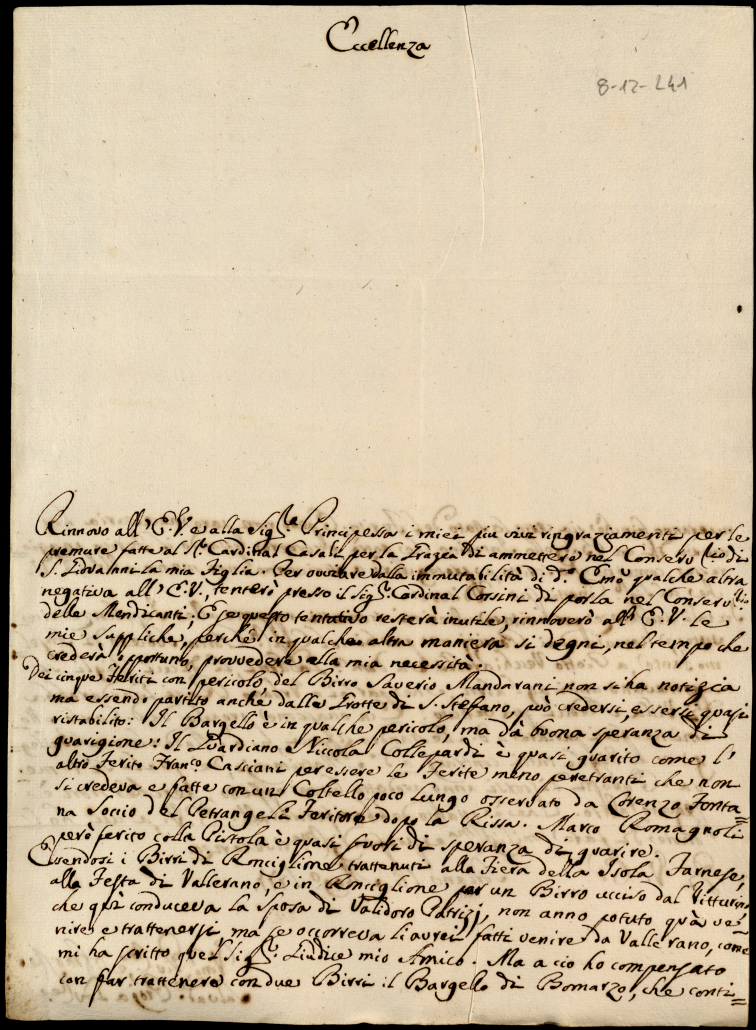 Eccellenza
8-12-241
Rinnovo all'E.V. e alla Sig.ra Principessa i miei piu vivi ringraziamenti per le
premure fatte al Sr. Cardinal Casali per la Grazia di ammettere nel Conserv.rio di
S. Giovanni la mia Figlia. Per ovviare dalla immutabilità di d.o Emo qualche altra
negativa all'E.V., tenterò presso il Sig.r Cardinal Corsini di porla nel Conserv.rio
delle Mendicanti; E se questo tentativo resterà inutile, rinnoverò all'E.V. le
mie suppliche, perchè in qualche altra maniera si degni, nel tempo che
crederà opportuno, provvedere alla mia necessità.
Dei cinque Feriti con pericolo del Birro Saverio Mandarani, non si ha notizia
ma essendo partito anche dalle Grotte di S. Stefano, può credersi, essersi quasi
ristabilito: Il Bargello è in qualche pericolo, ma dà buona speranza di
guarigione: Il Guardiano Niccola Collepardi è quasi guarito come l'
altro Ferito Franc.o Casciani per essere le Ferite meno penetranti che non
si credeva e fatte con un Coltello poco lungo osservato da Lorenzo Fonta=
na Soccio del Petrangeli Feritore dopo la Rissa. Marco Romagnoli
però ferito colla Pistola è quasi fuori di speranza di guarire.
Essendosi i Birri di Ronciglione trattenuti alla Fiera della Isola Farnese,
alla Festa di Vallerano, e in Ronciglione per un Birro ucciso dal Vitturino
che quì conduceva la Sposa di Validoro Patrizj, non anno potuto quà ve=
nire e trattenersi ma se occorreva li avrei fatti venire da Vallerano, come
mi ha scritto quel Sig.r Giudice mio Amico. Ma a cio ho compensato
con far trattenere con due Birri il Bargello di Bomarzo, che conti=